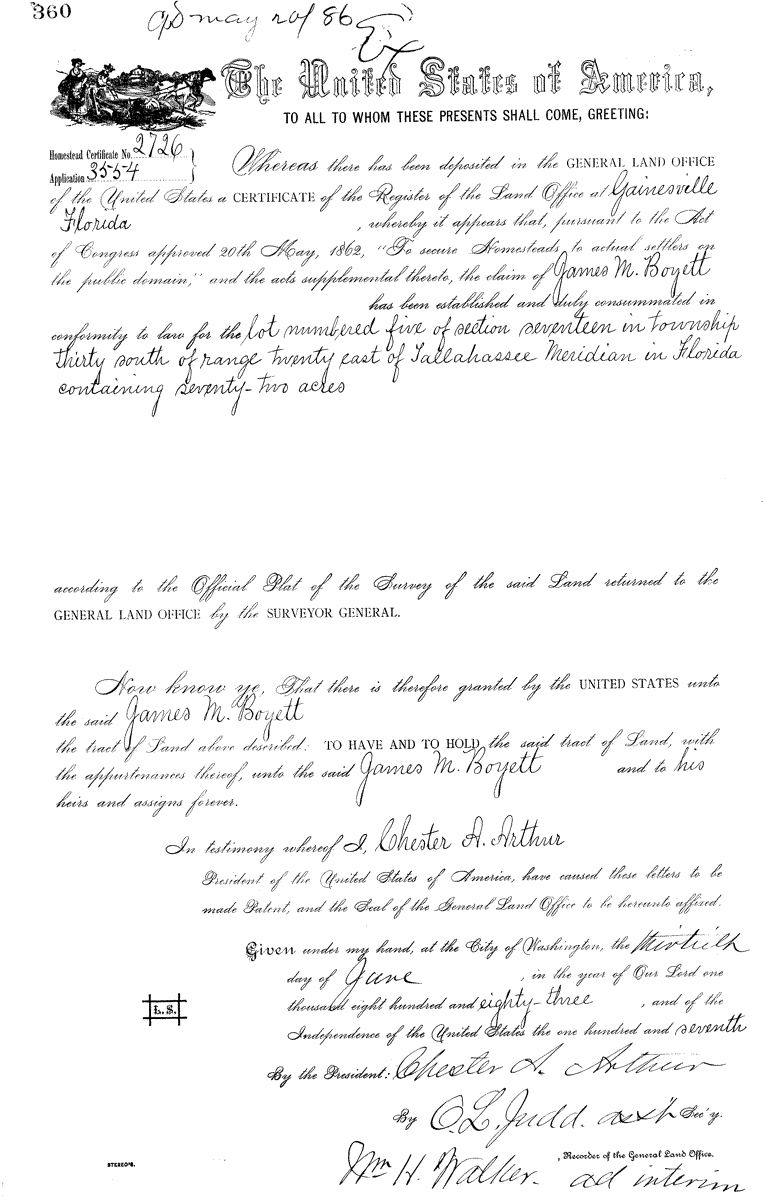 360
May 20/86
The United States of America,
TO ALL TO WHOM THESE PRESENTS SHALL COME, GREETING:
Homestead Certificate No. 2726
Application 3554
Whereas there has been deposited in the GENERAL LAND OFFICE
of the United States a CERTIFICATE of the Register of the Land Office at Gainesville
Florida , whereby it appears that, pursuant to the Act
of Congress approved 20th May, 1862, "To secure Homesteads to actual settlers on
the public domain," and the acts supplemental thereto, the claim of James M. Boyett
has been established and duly consummated in
conformity to law for the lot numbered five of section seventeen in township
thirty south of range twenty east of Tallahassee Meridian in Florida
containing seventy-two acres
according to the Official Plat of the Survey of the said Land returned to the
GENERAL LAND OFFICE by the SURVEYOR GENERAL.
Now know ye, That there is therefore granted by the UNITED STATES unto
the said James M. Boyett
the tract of Land above described: TO HAVE AND TO HOLD the said tract of Land, with
the appurtenances thereof, unto the said James M. Boyett and to his
heirs and assigns forever.
In testimony whereof I, Chester A. Arthur
President of the United States of America, have caused these letters to be
made Patent, and the Seal of the General Land Office to be hereunto affixed.
Given under my hand, at the City of Washington, the thirtieth
day of June , in the year of Our Lord one
thousand eight hundred and eighty-three , and of the
Independence of the United States the one hundred and seventh
L.S.
By the President: Chester A. Arthur
By O. L. Judd. asst Sec'y.
, Recorder of the General Land Office.
Wm H. Walker. ad interim
STEREO'S.